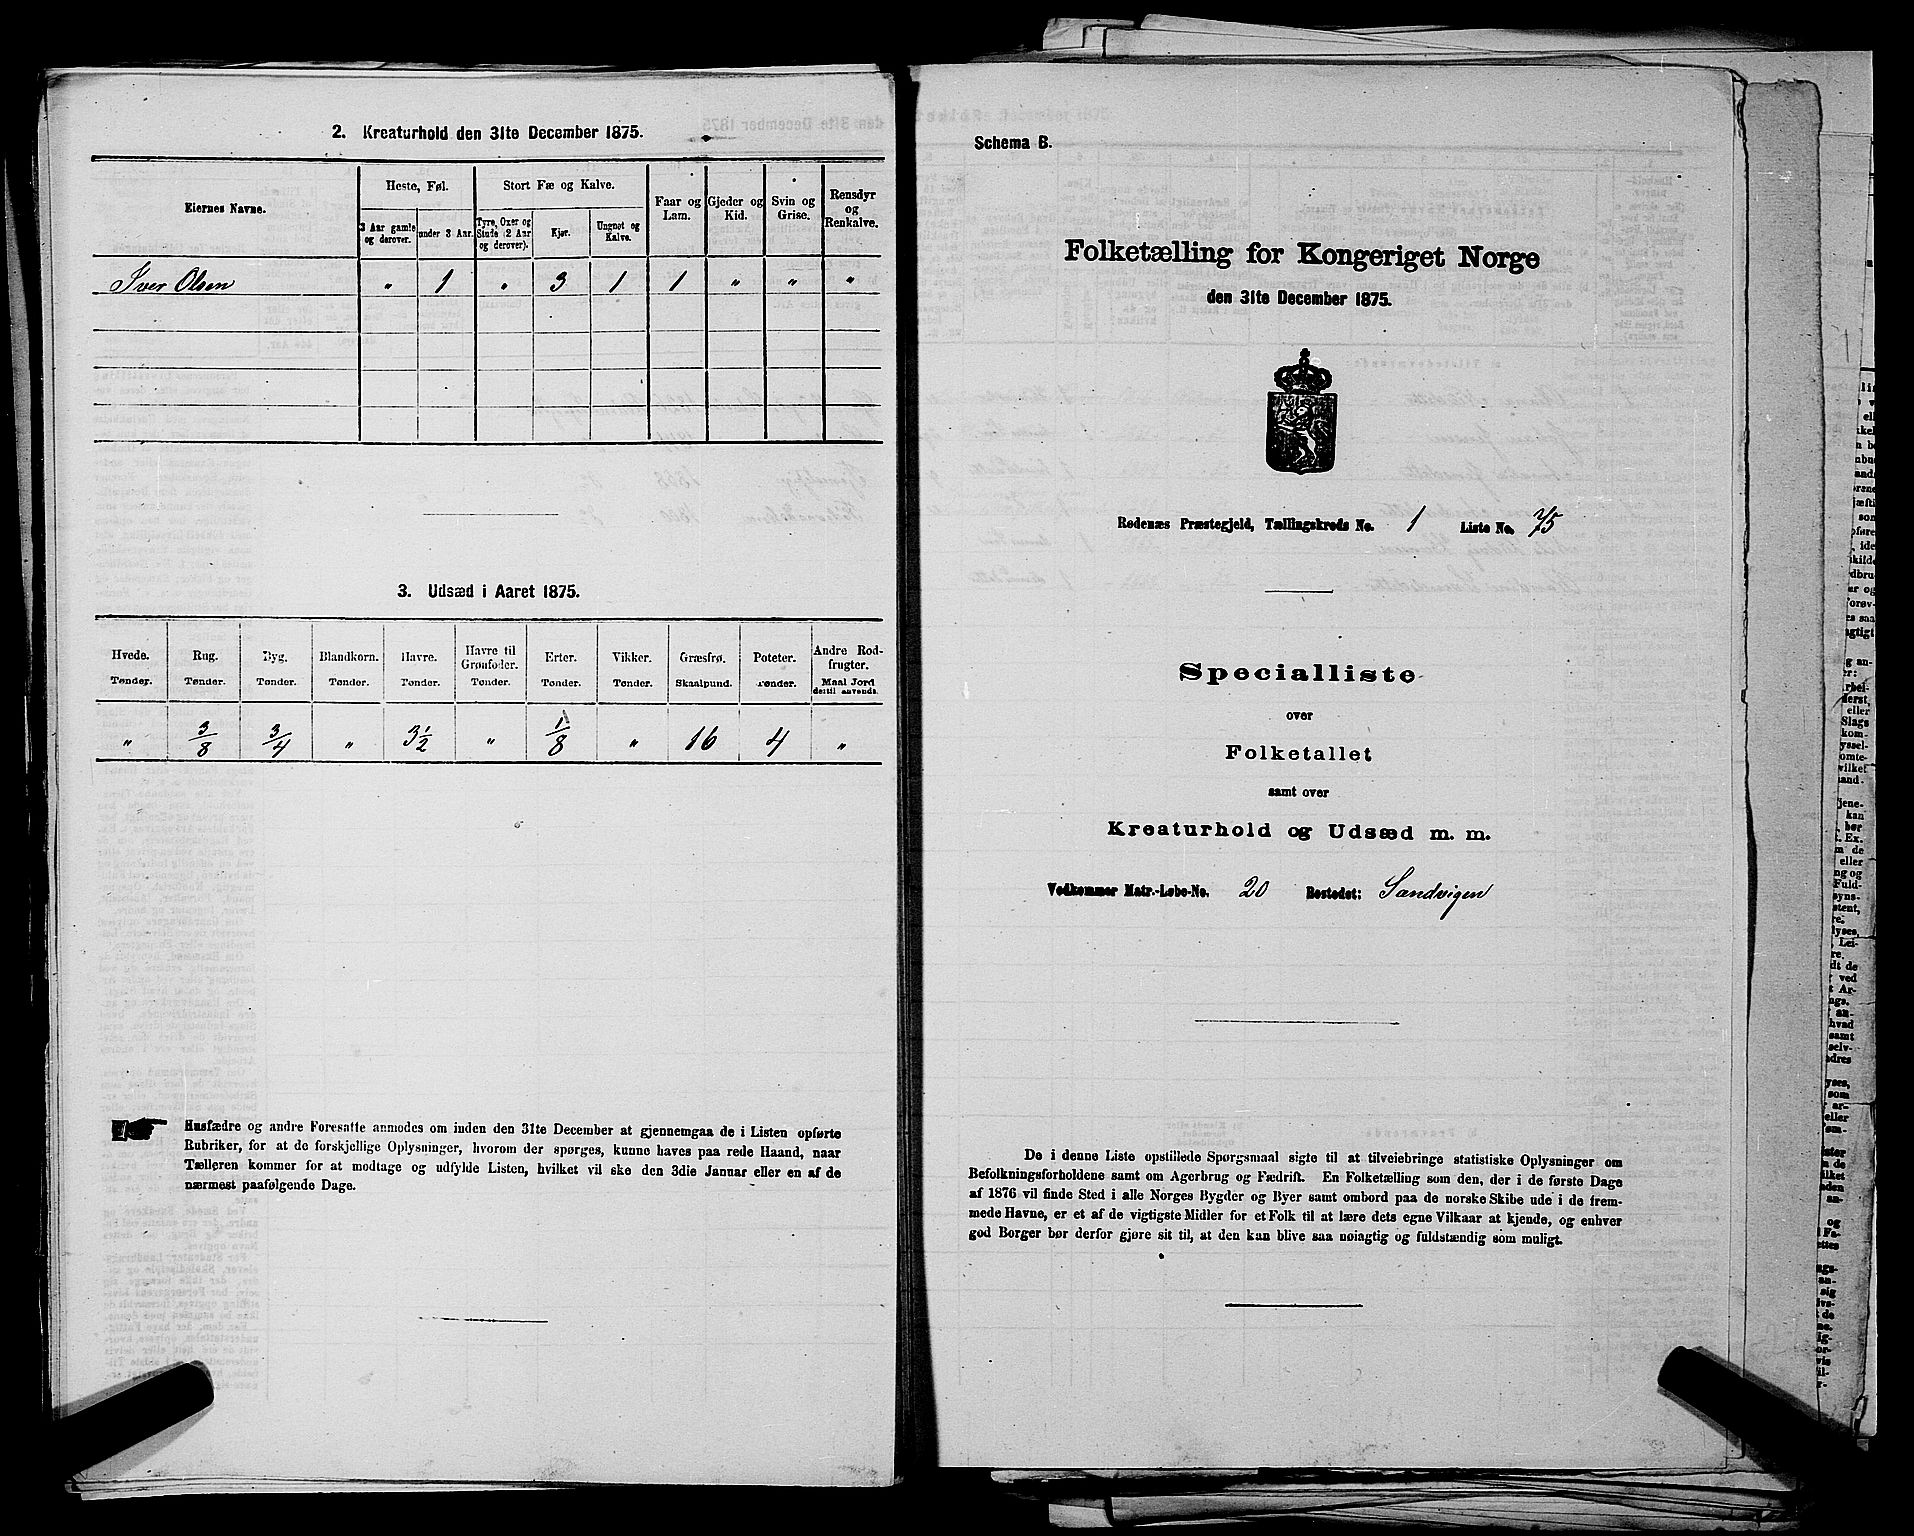 2. Kreaturhold den 31te December 1875.
Eiernes Navne.
Heste, Føl.
Stort Fæ og Kalve.
Faar og Lam.
Gjeder og Kid.
Svin og Grise.
Rensdyr og Renkalve.
3 Aar gamle og derover.
under 3 Aar.
Tyre, Oxer og Stude (2 Aar og derover).
Kjør.
Ungnøt og Kalve.
Iver Olsen " 1 " 3 1 1 " " "
3. Udsæd i Aaret 1875.
Hvede. Rug. Byg. Blandkorn. Havre. Havre til Grønfoder. Erter. Vikker. Græsfrø. Poteter. Andre Rodfrugter.
Tønder. Tønder. Tønder. Tønder. Tønder. Tønder. Tønder. Tønder. Skaalpund. Tønder. Maal Jord dertil anvendt.
" 3/8 3/4 " 3 1/2 " 1/8 " 16 4 "
Husfædre og andre Foresatte anmodes om inden den 31te December at gjennemgaa de i Listen opførte
Rubriker, for at de forskjellige Oplysninger, hvorom der spørges, kunne haves paa rede Haand, naar
Tælleren kommer for at modtage og udfylde Listen, hvilket vil ske den 3die Januar eller en af de
nærmest paafølgende Dage.
Schema B.
Folketælling for Kongeriget Norge
den 31te December 1875.
Rødenæs Præstegjeld, Tællingskreds No. 1 Liste No. 75
Specialliste
over
Folketallet
samt over
Kreaturhold og Udsæd m. m.
Vedkommer Matr.-Løbe-No. 20 Bostedet: Sandvigen
De i denne Liste opstillede Spørgsmaal sigte til at tilveiebringe statistiske Oplysninger om
Befolkningsforholdene samt om Agerbrug og Fædrift. En Folketælling som den, der i de første Dage
af 1876 vil finde Sted i alle Norges Bygder og Byer samt ombord paa de norske Skibe ude i de frem-
mede Havne, er et af de vigtigste Midler for et Folk til at lære dets egne Vilkaar at kjende, og enhver
god Borger bør derfor gjøre sit til, at den kan blive saa nøiagtig og fuldstændig som muligt.